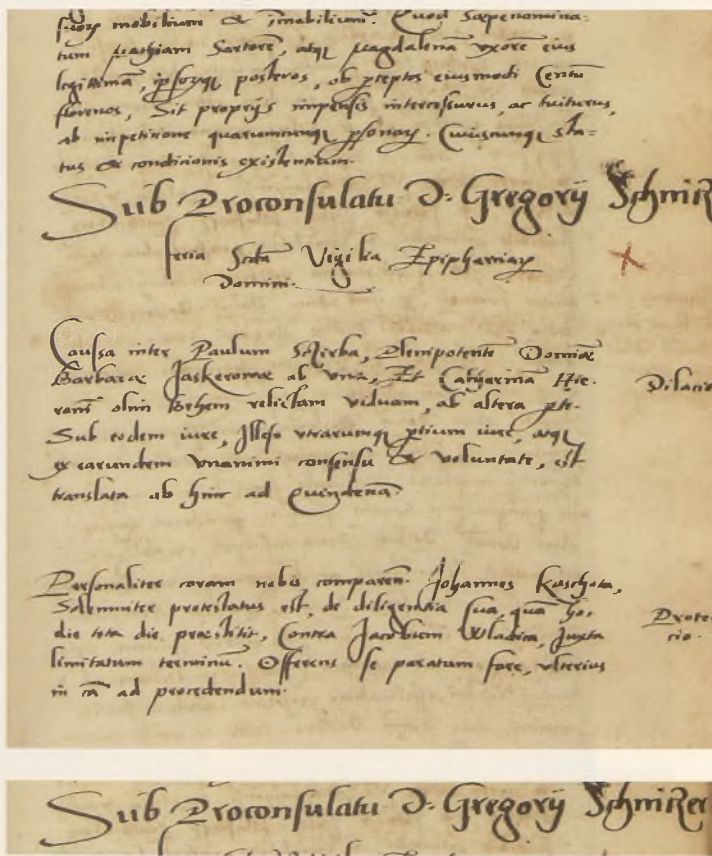 suorum mobilium & Immobilium. Quod Saepenomina-
tum Mathiam Sartorē, atque Magdalenā vxorē eius
legittimā, ipsorumque posteros, ob perceptos eiusmodi Centū
florenos, Sit proprijs impensis intercessurus, ac tuiturus,
ab impetitione quarumcumque personarum. Cuiuscunque sta-
tus & condicionis existentium.
Sub Proconsulatu D: Gregorij Schmiz
feria Scda Vigilia Epiphaniarum
Domini.
Caussa inter Paulum Skirba, Plenipotentē Domine
Barbarae Jaskerowae ab vna, Et Catherinā Hie-
roni olim Behem relictam viduam, ab altera parte.
Sub eodem iure, Illeso vtrarumque partium iure, atque
ex earundem vnanimi consensu & voluntate, est
translata ab hinc ad Quindenā.
Dilacio
Personaliter coram nobis comparens Johannes Kuschota,
Solemniter protestatus est, de diligentia sua, quā ho-
die tota die praestitit, Contra Jacobum Wladica, Juxta
limitatum terminū. Offerens se paratum fore, vlterius
in cā ad procedendum.
Protes
cio.
Sub Proconsulatu D: Gregorij Schmizer